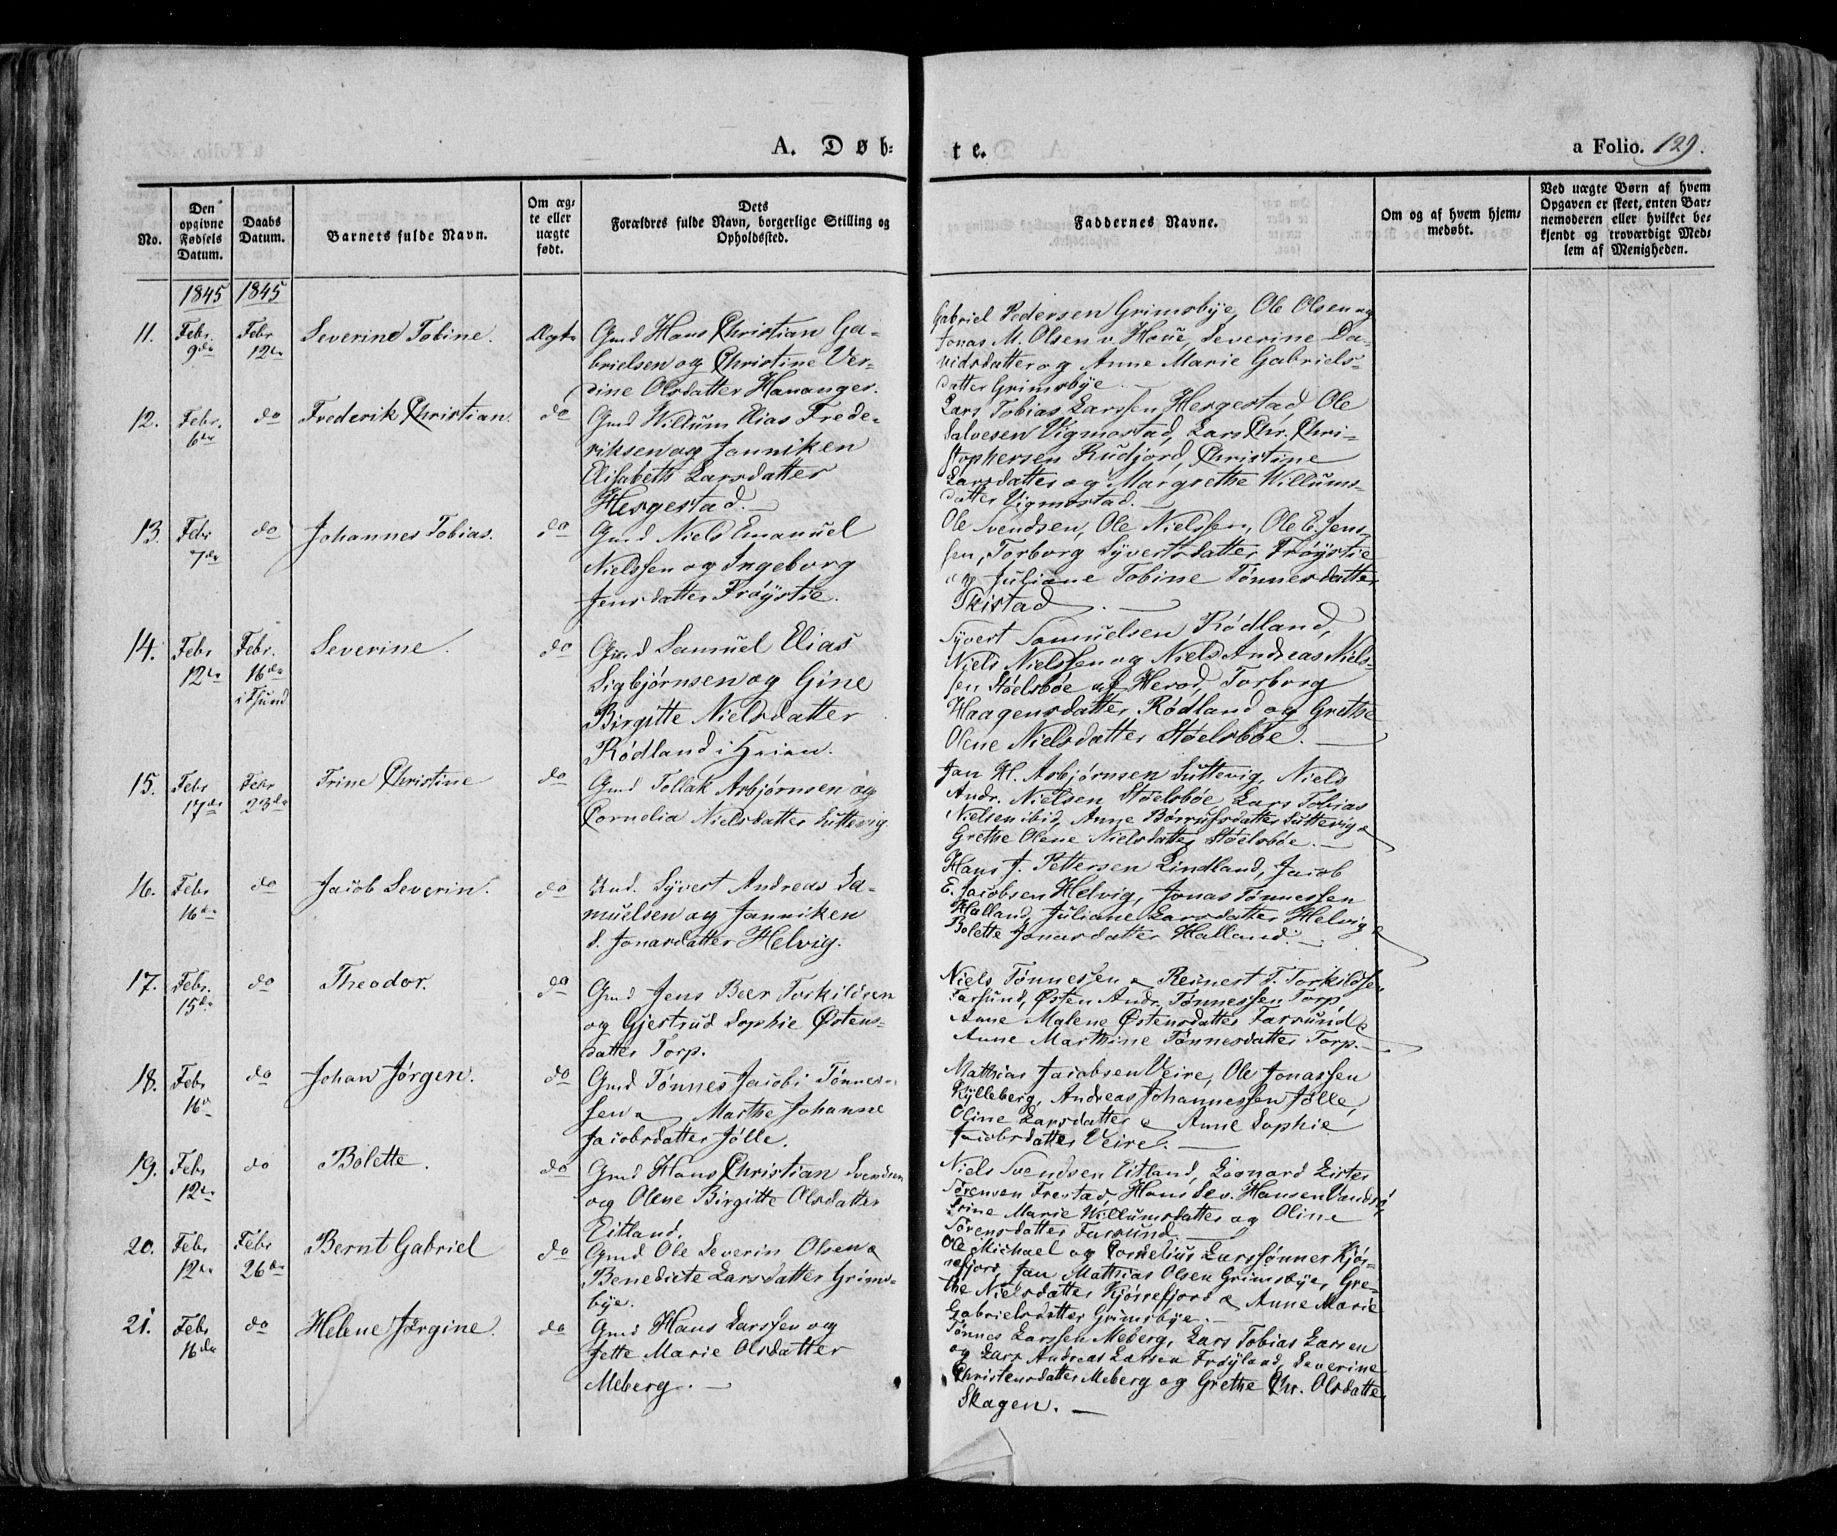 A. Døb-
te.
a Folio. 129.
No.
Den opgivne Fødsels Datum.
Daabs Datum.
Barnets fulde Navn.
Om ægte eller uægte født.
Dets
Forældres fulde Navn, borgerlige Stilling og
Opholdssted.
Faddernes Navne.
Om og af hvem hjem-
medøbt.
Ved uægte Børn af hvem
Opgaven er skeet, enten Bar-
nemoderen eller hvilket be-
kjendt og troværdigt Med-
lem af Menigheden.
1845 1845
11. Febr 9de Febr 12te Severine Tobine. Ægte
Gmd Hans Christian Ga-
brielsen og Christine Ver-
dine Olsdatter Hananger.
Gabriel Pedersen Grimsbye, Ole Olsen og
Jonas M. Olsen v. Haue, Severine Da-
vidsdatter og Anne Marie Gabriels-
datter Grimsbye.
12. Febr. 6te do Frederik Christian. do
Gmd Willum Elias Frede-
riksen og Janniken
Elisabeth Larsdatter
Hergestad.
Lars Tobias Larssen Hergestad, Ole
Salvesen Vigmostad, Lars Chr. Chri-
stophersen Rudjord, Christine
Larsdatter og Margrethe Willums-
datter Vigmostad.
13. Febr 7de do Johannes Tobias. do
Gmd Niels Emanuel
Nielssen og Ingeborg
Jensdatter Frøystie.
Ole Svendsen, Ole Nielssen, Ole E. Jens-
sen, Torborg Syvertsdatter Frøystie
og Juliane Tobine Tønnesdatter
Skistad.
14. Febr 12te Febr. 16de i Fsund Severine. do
Gmd Samuel Elias
Sigbjørnsen og Gine
Birgitte Nielsdatter
Rødland i Heien.
Syvert Samuelsen Rødland,
Niels Nielssen og Niels Andreas Niels-
sen Støelsbøe af Herod, Torborg
Haagensdatter Rødland og Grethe
Olene Nielsdatter Støelsbøe.
15. Febr 17de Febr 23de Trine Christine do
Gmd Tollak Asbjørnsen og
Cornelia Nielsdatter Luttevig
Jan H. Asbjørnsen Luttevig, Niels
Andr. Nielsen Støelsbøe, Lars Tobias
Nielsen ibid, Anne Børrufsdatter Luttevig &
Grethe Olene Nielsdatter Støelsbøe.
16. Febr 16de do Jacob Severin. do
Gmd. Syvert Andreas Sa-
muelsen og Janniken
S. Jonasdatter Helvig.
Hans J. Pettersen Lindland, Jacob
E. Jacobsen Helvig, Jonas Tønnessen
Halland, Juliane Larsdatter Helvig &
Bolette Jonasdatter Halland.
17. Febr. 15de do Theodor. do
Gmd Jens Beer Torkildsen
og Gjertrud Sophie Østens-
datter Torp.
Niels Tønnessen & Reinert T. Torkildsen
Farsund, Østen Andr. Tønnessen Torp
Anne Malene Østensdatter Farsund &
Anne Marthine Tønnesdatter Torp.
18. Febr 16de do Johan Jørgen. do
Gmd Tønnes Jacobi Tønnes-
sen & Marthe Johanne
Jacobsdatter Jølle.
Mathias Jacobsen Veire, Ole Jonassen
Kylleberg, Andreas Johannessen Jølle,
Oline Larsdatter & Anne Sophie
Jacobsdatter Veire.
19. Febr 12te do Bolette. do
Gmd Hans Christian Svendsen
og Olene Birgitte Olsdatter
Eitland.
Niels Svendsen Eitland, Leonard Lister
Sørensen Frestad, Hans Sev. Hansen Vandsø,
Trine Marie Willumsdatter og Oline
Sørensdatter Farsund.
20. Febr 12te Febr 26de Bernt Gabriel do
Gmd Ole Severin Olsen &
Benedicte Larsdatter Grims-
bye.
Ole Michael og Cornelius Larssønner Kjør-
refjord, Jan Mathias Olsen Grimsbye, Gre-
the Nielsdatter Kjørrefjord & Anne Marie
Gabrielsdatter Grimsbye.
21. Febr 16de do Helene Jørgine. do
Gmd Hans Larssen og
Jette Marie Olsdatter
Meberg.
Tønnes Larssen Meberg, Lars Tobias Larsen
og Lars Andreas Larsen Frøyland, Severine
Christensdatter Meberg og Grethe Chr. Olsdatter
Skagen.